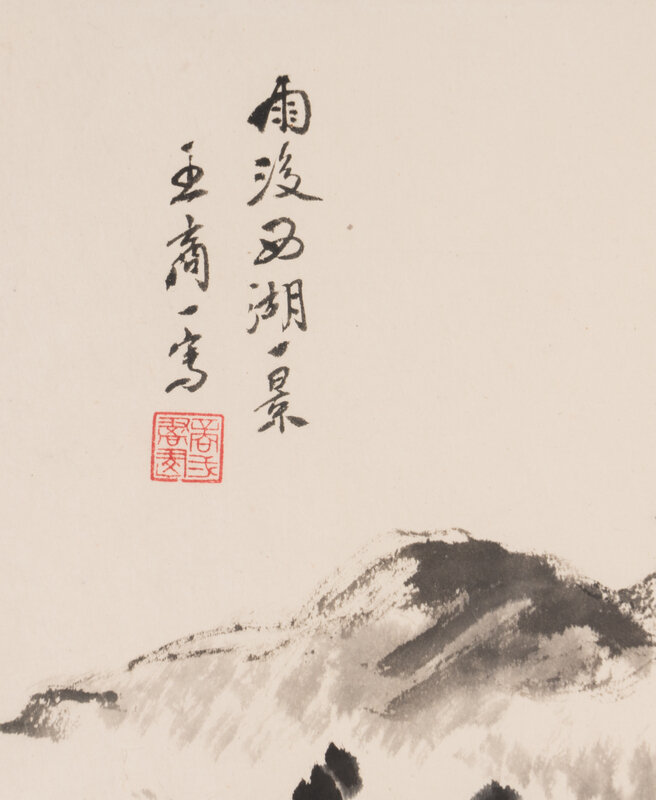 雨後西湖一景
王商一寫